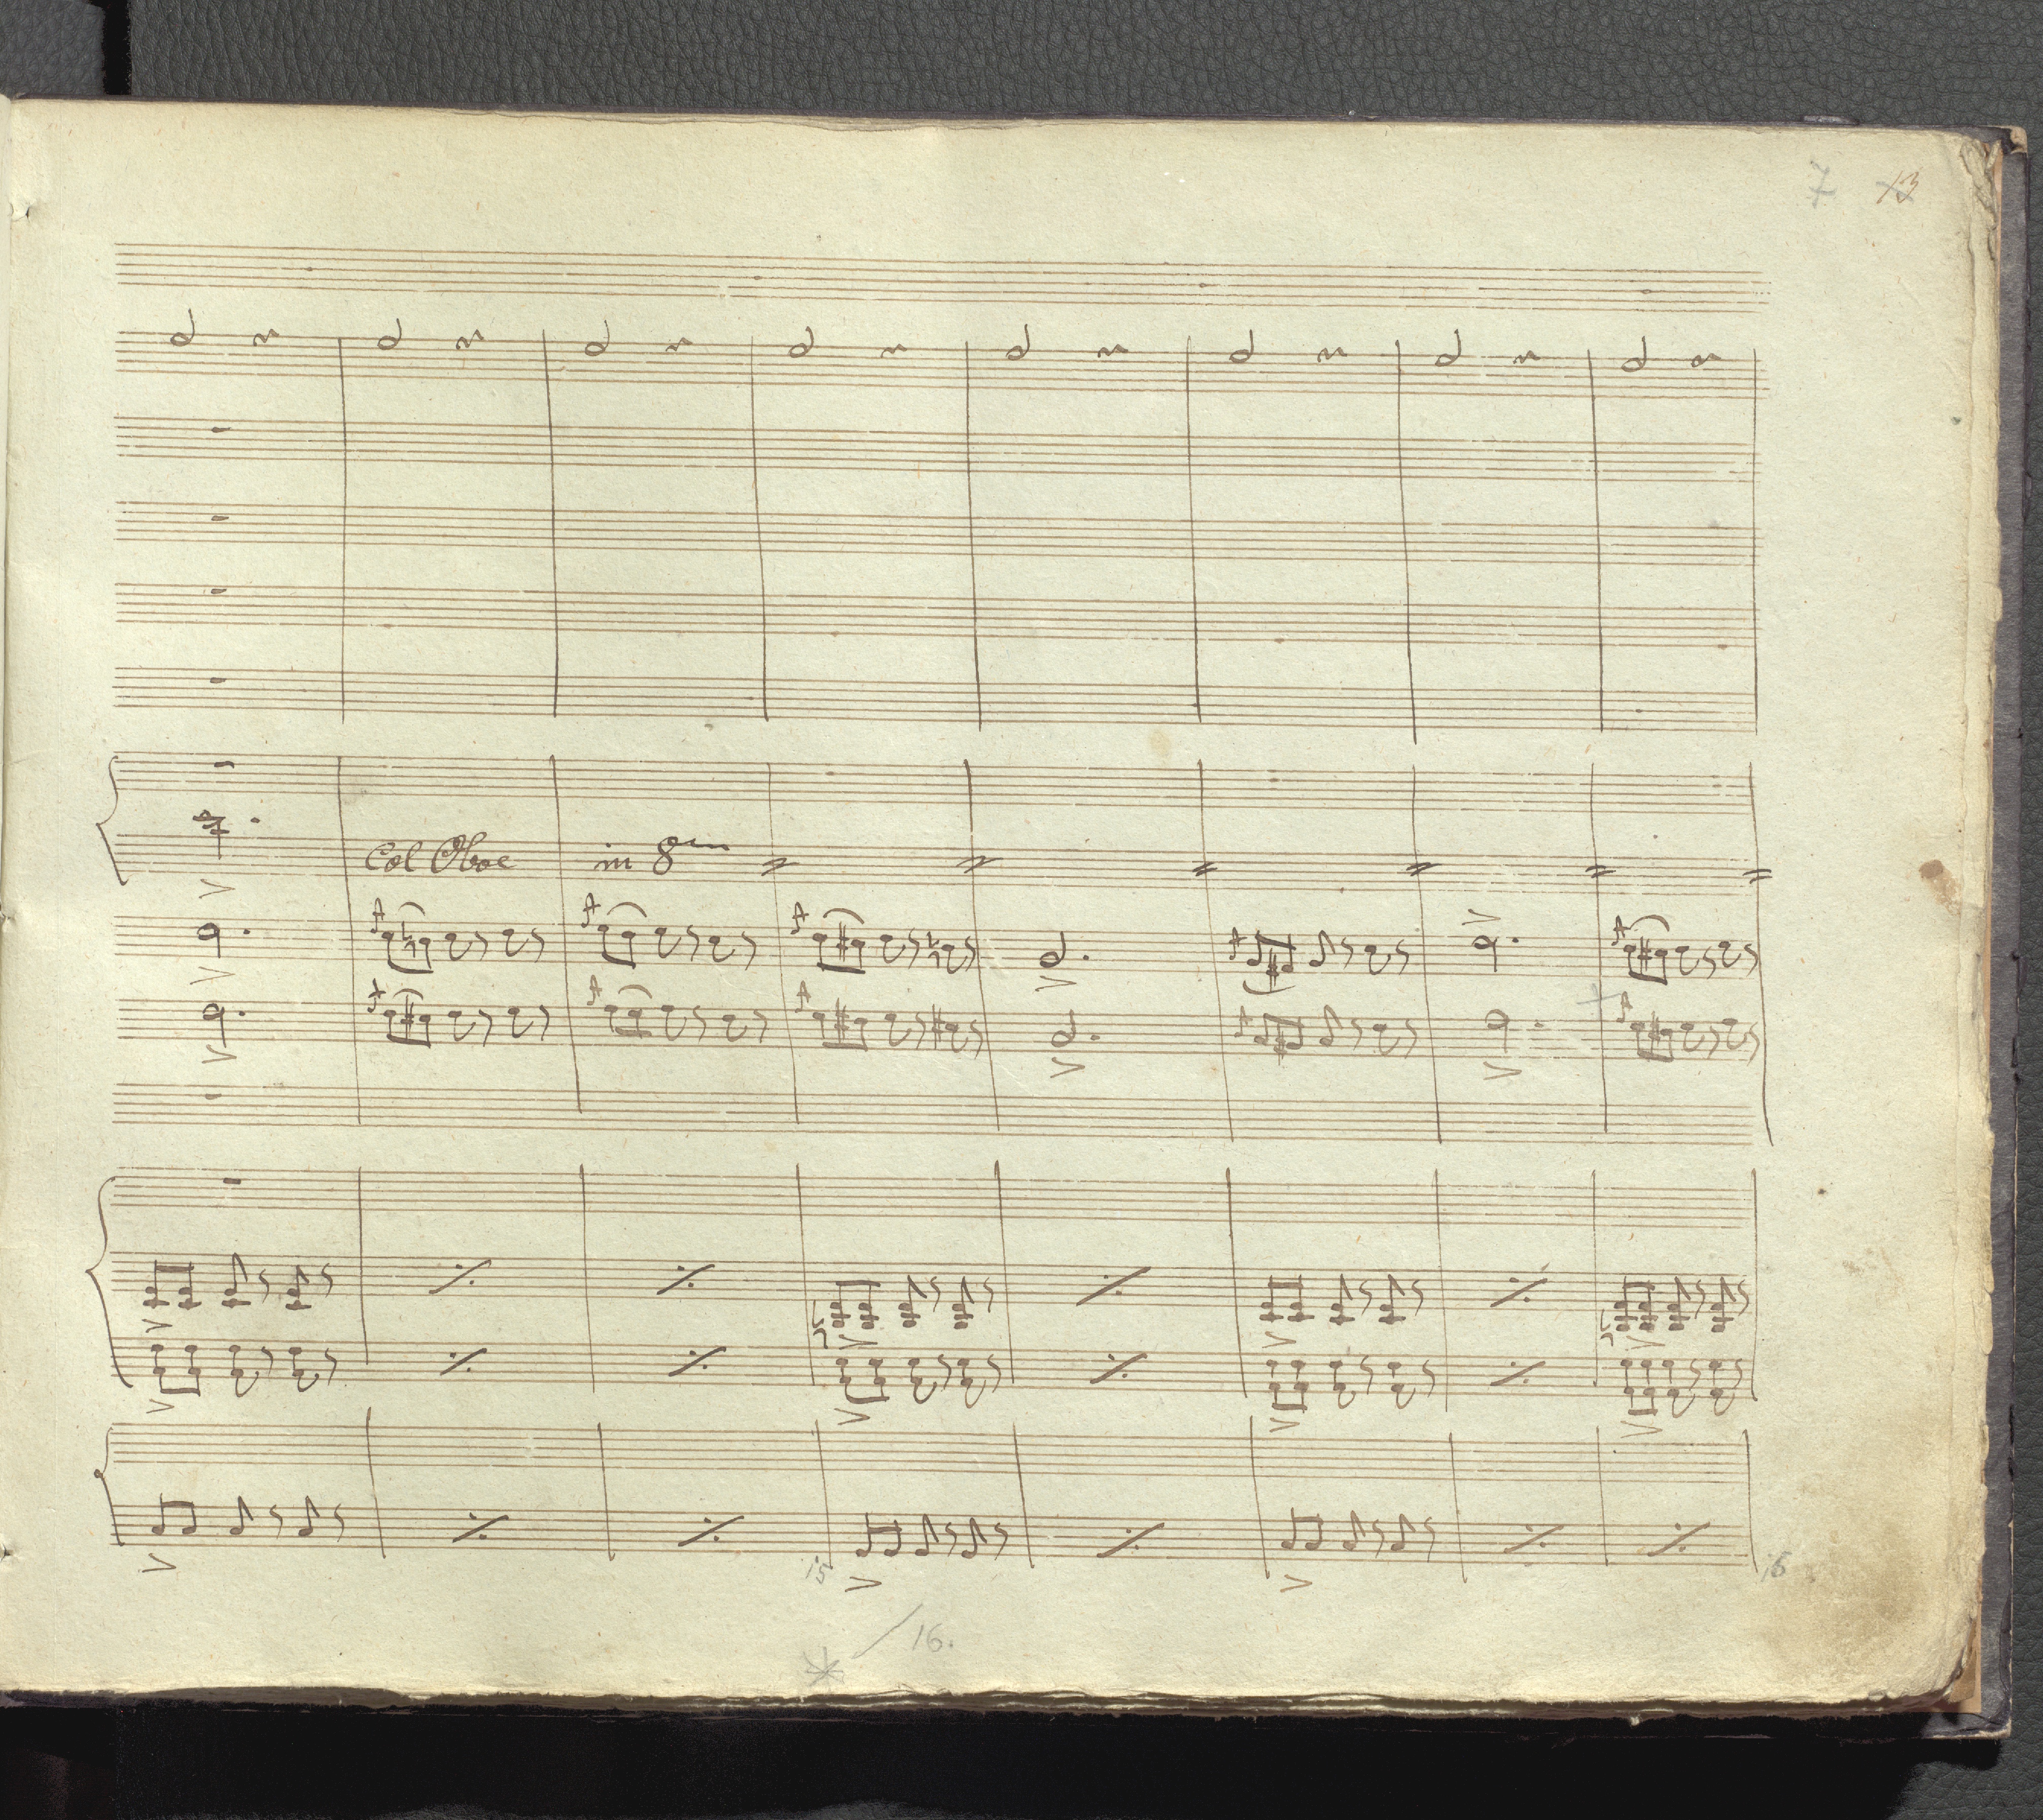 7 13
Col Oboe in 8
15
16
16.